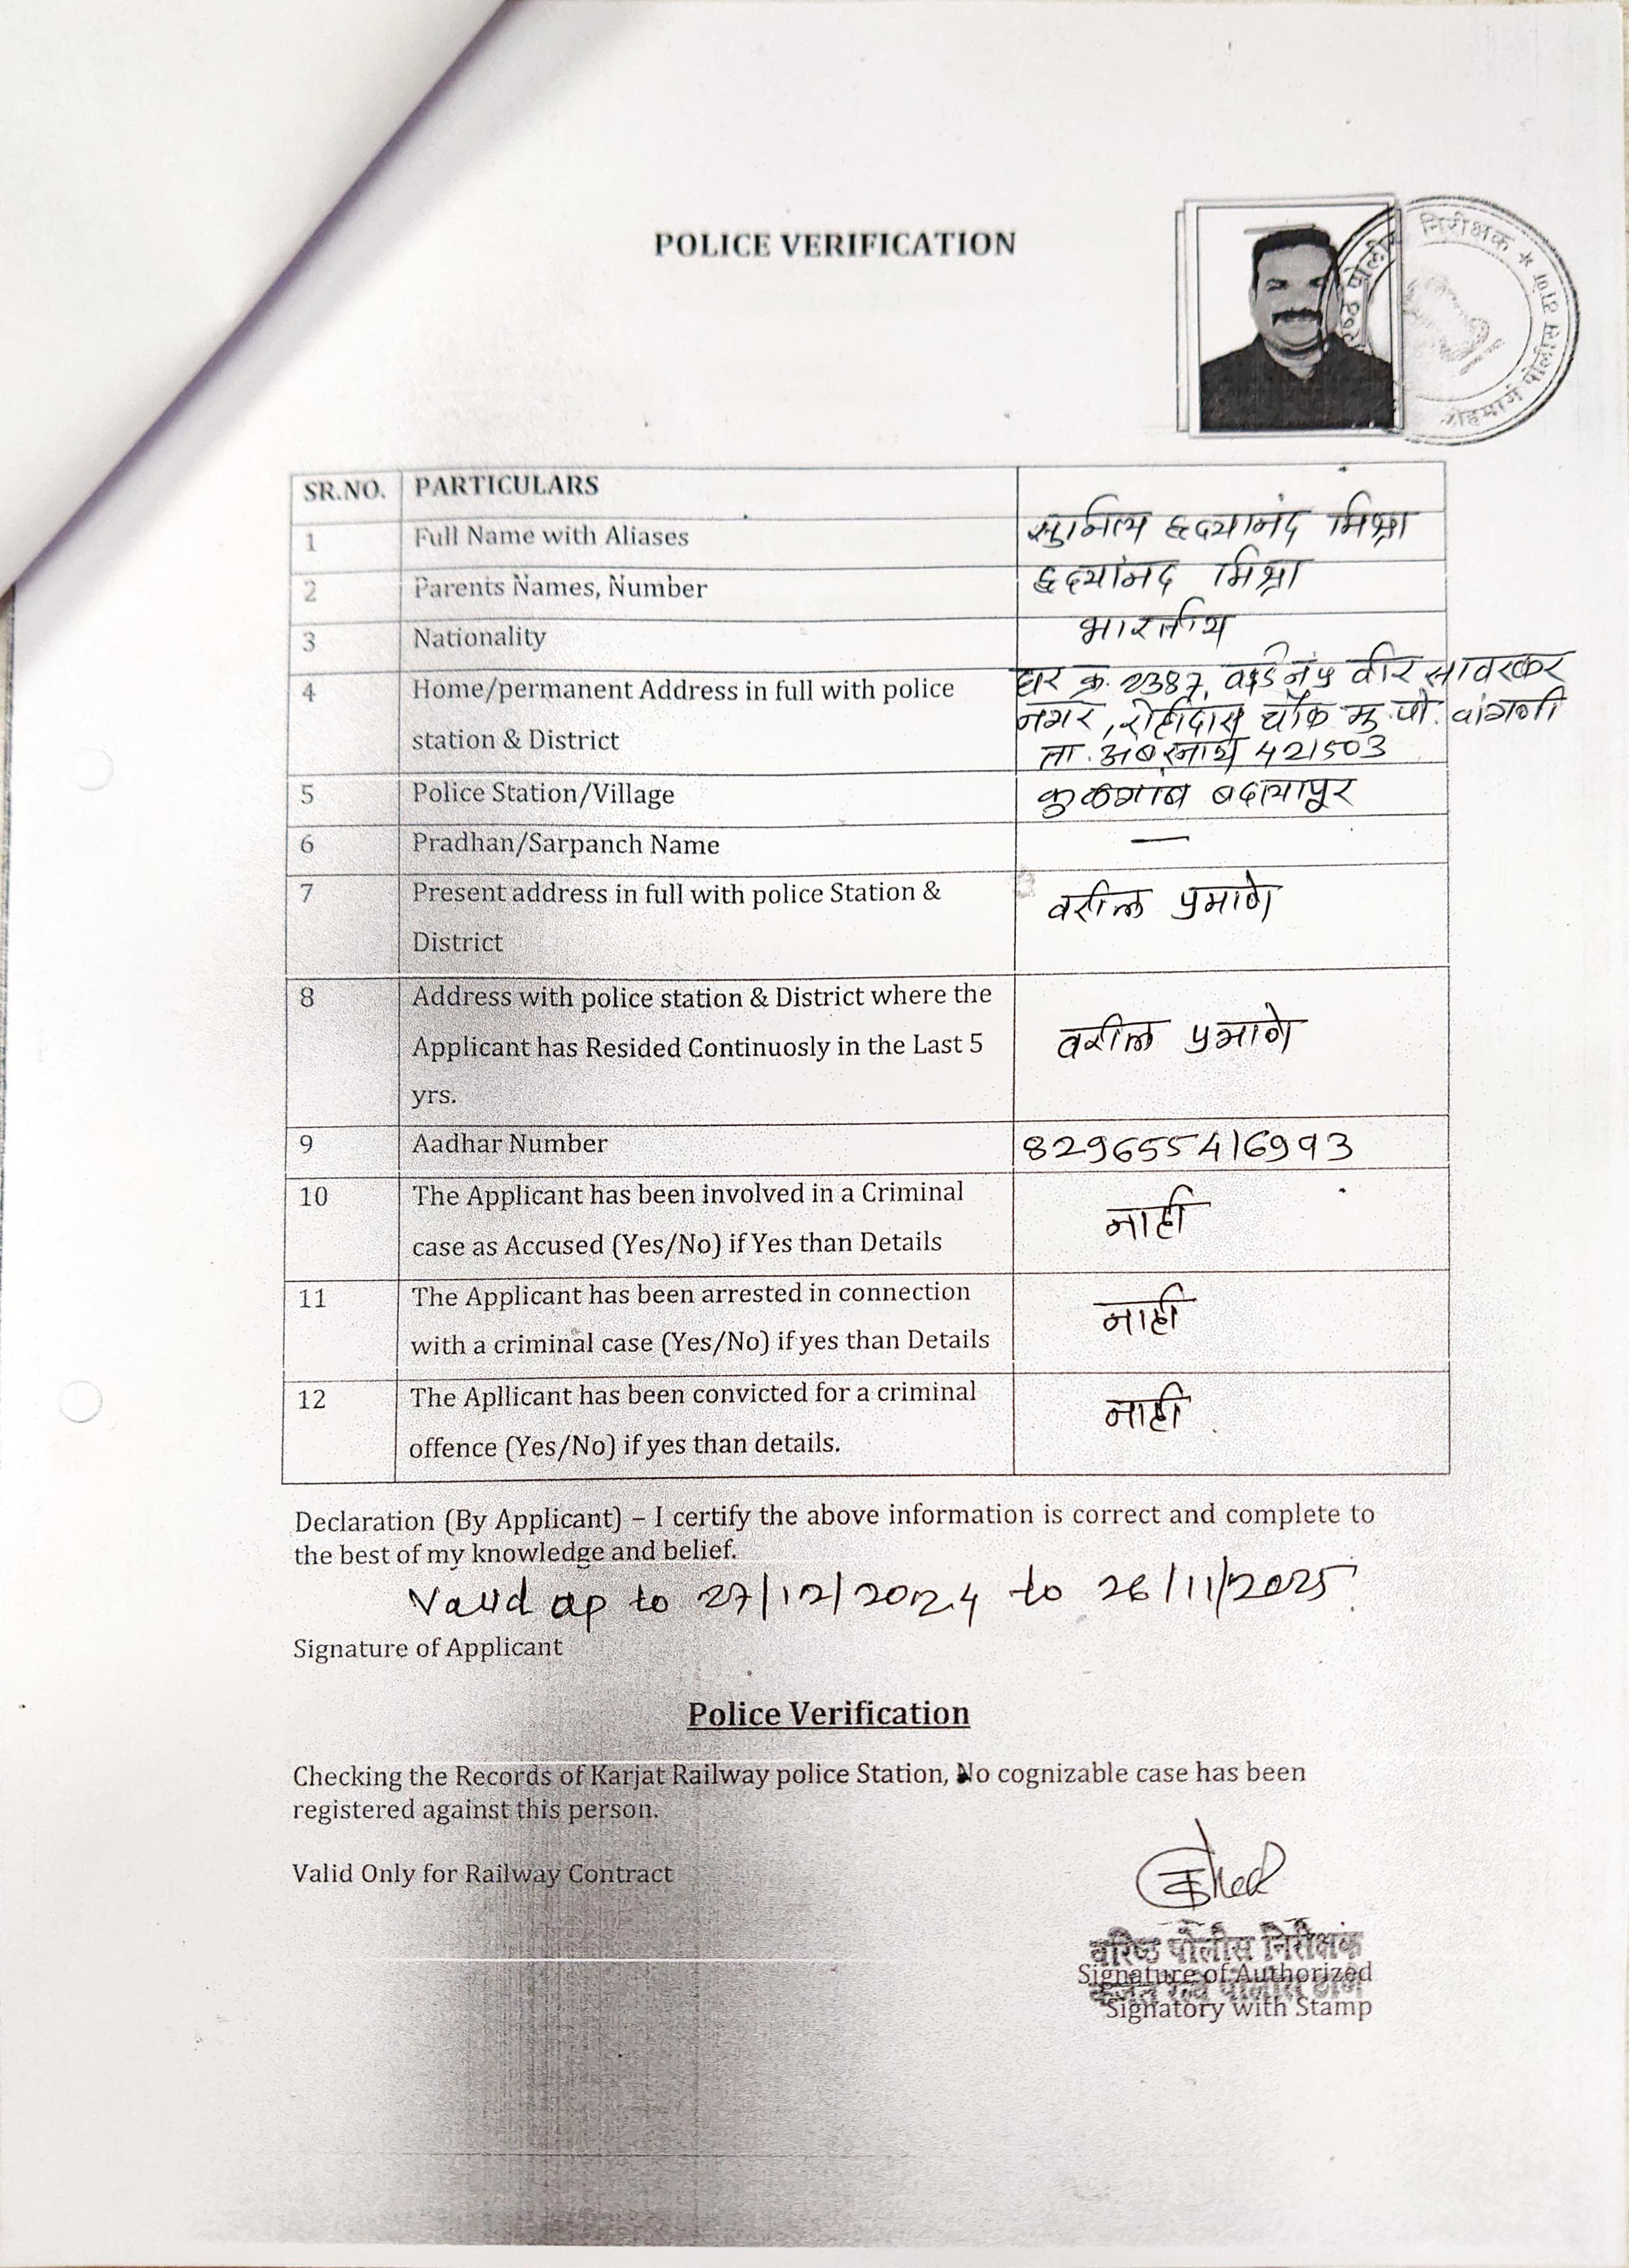 POLICE VERIFICATION
निरीक्षक * ठाणे
लोहमार्ग पोलीस
SR.NO. PARTICULARS
1 Full Name with Aliases सुनित्य हृदयानंद मिश्रा
2 Parents Names, Number हृदयांनद मिश्रा
3 Nationality भारतीय
4 Home/permanent Address in full with police station & District घर क्र. 2387, वार्ड नं 5 वीर सावरकर
नगर, रोहीदास चौक मु.पो. वांगणी
ता. अबरनाथ 421503
5 Police Station/Village कुळगांव बदलापूर
6 Pradhan/Sarpanch Name —
7 Present address in full with police Station &
District वरील प्रमाणे
8 Address with police station & District where the
Applicant has Resided Continuosly in the Last 5 वरील प्रमाणे
yrs.
9 Aadhar Number 829655416993
10 The Applicant has been involved in a Criminal
case as Accused (Yes/No) if Yes than Details नाही
11 The Applicant has been arrested in connection
with a criminal case (Yes/No) if yes than Details नाही
12 The Apllicant has been convicted for a criminal
offence (Yes/No) if yes than details. नाही
Declaration (By Applicant) – I certify the above information is correct and complete to
the best of my knowledge and belief.
Valid up to 27/12/2024 to 26/11/2025
Signature of Applicant
Police Verification
Checking the Records of Karjat Railway police Station, No cognizable case has been
registered against this person.
Valid Only for Railway Contract
वरिष्ठ पोलीस निरीक्षक
Signature of Authorized
कर्जत रेल्वे पोलीस ठाणे
Signatory with Stamp